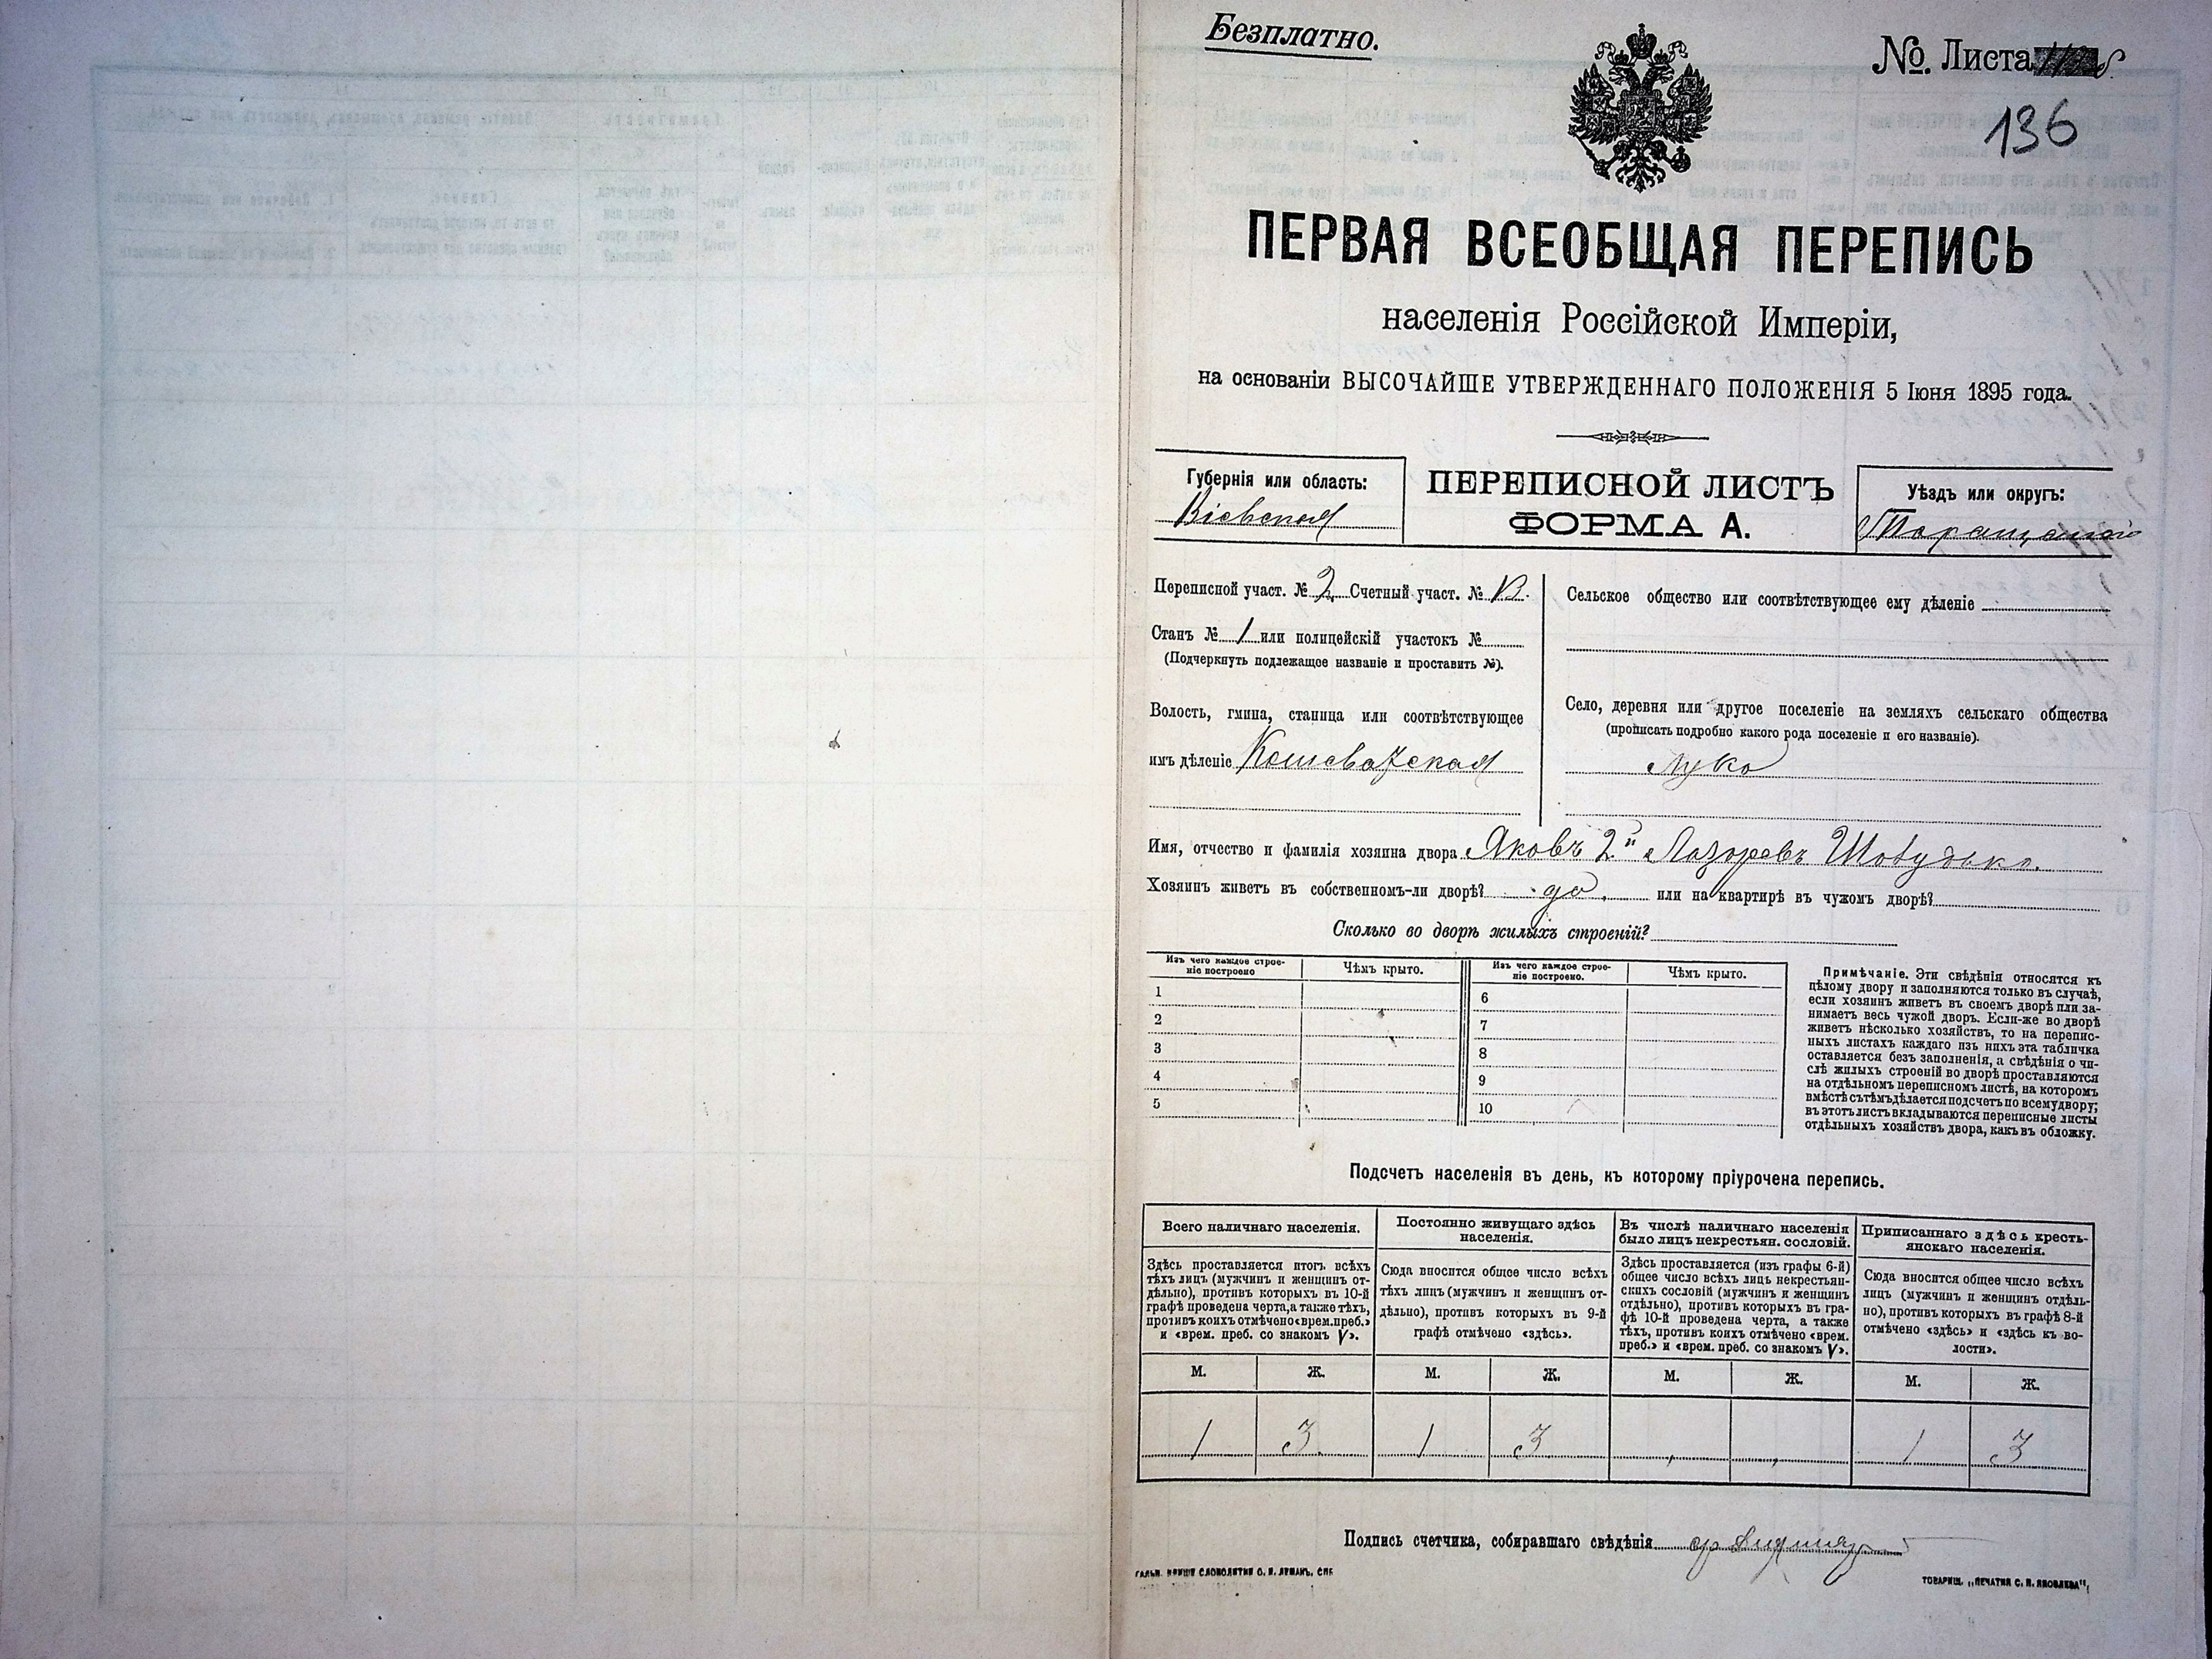 Безплатно.
№. Листа
136
ПЕРВАЯ ВСЕОБЩАЯ ПЕРЕПИСЬ
населенія Россійской Имперіи,
на основаніи ВЫСОЧАЙШЕ УТВЕРЖДЕННАГО ПОЛОЖЕНІЯ 5 Іюня 1895 года.
Губернія или область:
Кіевская
ПЕРЕПИСНОЙ ЛИСТЪ
ФОРМА А.
Уѣздъ или округъ:
Таращанскій
Переписной участ. № 2 Счетный участ. №
Станъ № 1 или полицейскій участокъ №
(Подчеркнуть подлежащое названіе и проставить №).
Волость, гмина, станица или соотвѣтствующее
имъ дѣленіе Кошеватская
Сельское общество или соотвѣтствующее ему дѣленіе
Село, деревня или другое поселеніе на земляхъ сельскаго общества
(прописать подробно какого рода поселеніе и его названіе).
Лука
Имя, отчество и фамилія хозяина двора Яковъ 2й Лазоревъ
Хозяинъ живетъ въ собственномъ-ли дворѣ? да или на квартирѣ въ чужомъ дворѣ?
Сколько во дворѣ жилыхъ строеній?
Изъ чего каждое строе-
ніе построено
Чѣмъ крыто.
Изъ чего каждое строе-
ніе построено.
Чѣмъ крыто.
1
2
3
4
5
6
7
8
9
10
Примѣчаніе. Эти свѣдѣнія относятся къ
цѣлому двору и заполняются только въ случаѣ,
если хозяинъ живетъ въ своемъ дворѣ или за-
нимаетъ весь чужой дворъ. Если-же во дворѣ
живетъ нѣсколько хозяйствъ, то на перепис-
ныхъ листахъ каждаго изъ нихъ эта табличка
оставляется безъ заполненія, а свѣдѣнія о чи-
слѣ жилыхъ строеній во дворѣ проставляются
на отдѣльномъ переписномъ листѣ, на которомъ
вмѣстѣ съ тѣмъ дѣлается подсчетъ по всему двору;
въ этотъ листъ вкладываются переписные листы
отдѣльныхъ хозяйствъ двора, какъ въ обложку.
Подсчетъ населенія въ день, къ которому пріурочена перепись.
Всего наличнаго населенія.
Здѣсь проставляется итогъ всѣхъ
тѣхъ лицъ (мужчинъ и женщинъ от-
дѣльно), противъ которыхъ въ 10-й
графѣ проведена черта, а также тѣхъ,
противъ коихъ отмѣчено «врем. преб.»
и «врем. преб. со знакомъ V».
Постоянно живущаго здѣсь
населенія.
Сюда вносится общее число всѣхъ
тѣхъ лицъ (мужчинъ и женщинъ от-
дѣльно), противъ которыхъ въ 9-й
графѣ отмѣчено «здѣсь».
Въ числѣ наличнаго населенія
было лицъ некрестьян. сословій.
Здѣсь проставляется (изъ графы 6-й)
общее число всѣхъ лицъ некрестьян-
скихъ сословій (мужчинъ и женщинъ
отдѣльно), противъ которыхъ въ гра-
фѣ 10-й проведена черта, а также
тѣхъ, противъ коихъ отмѣчено «врем.
преб.» и «врем. преб. со знакомъ V».
Приписаннаго здѣсь кресть-
янскаго населенія.
Сюда вносится общее число всѣхъ
лицъ (мужчинъ и женщинъ отдѣль-
но), противъ которыхъ въ графѣ 8-й
отмѣчено «здѣсь» и «здѣсь къ во-
лости».
М. Ж. М. Ж. М. Ж. М. Ж.
1 3 1 3 1 3
Подпись счетчика, собиравшаго свѣдѣнія
ТОВАРИЩ. „ПЕЧАТНЯ С. П. ЯКОВЛЕВА“